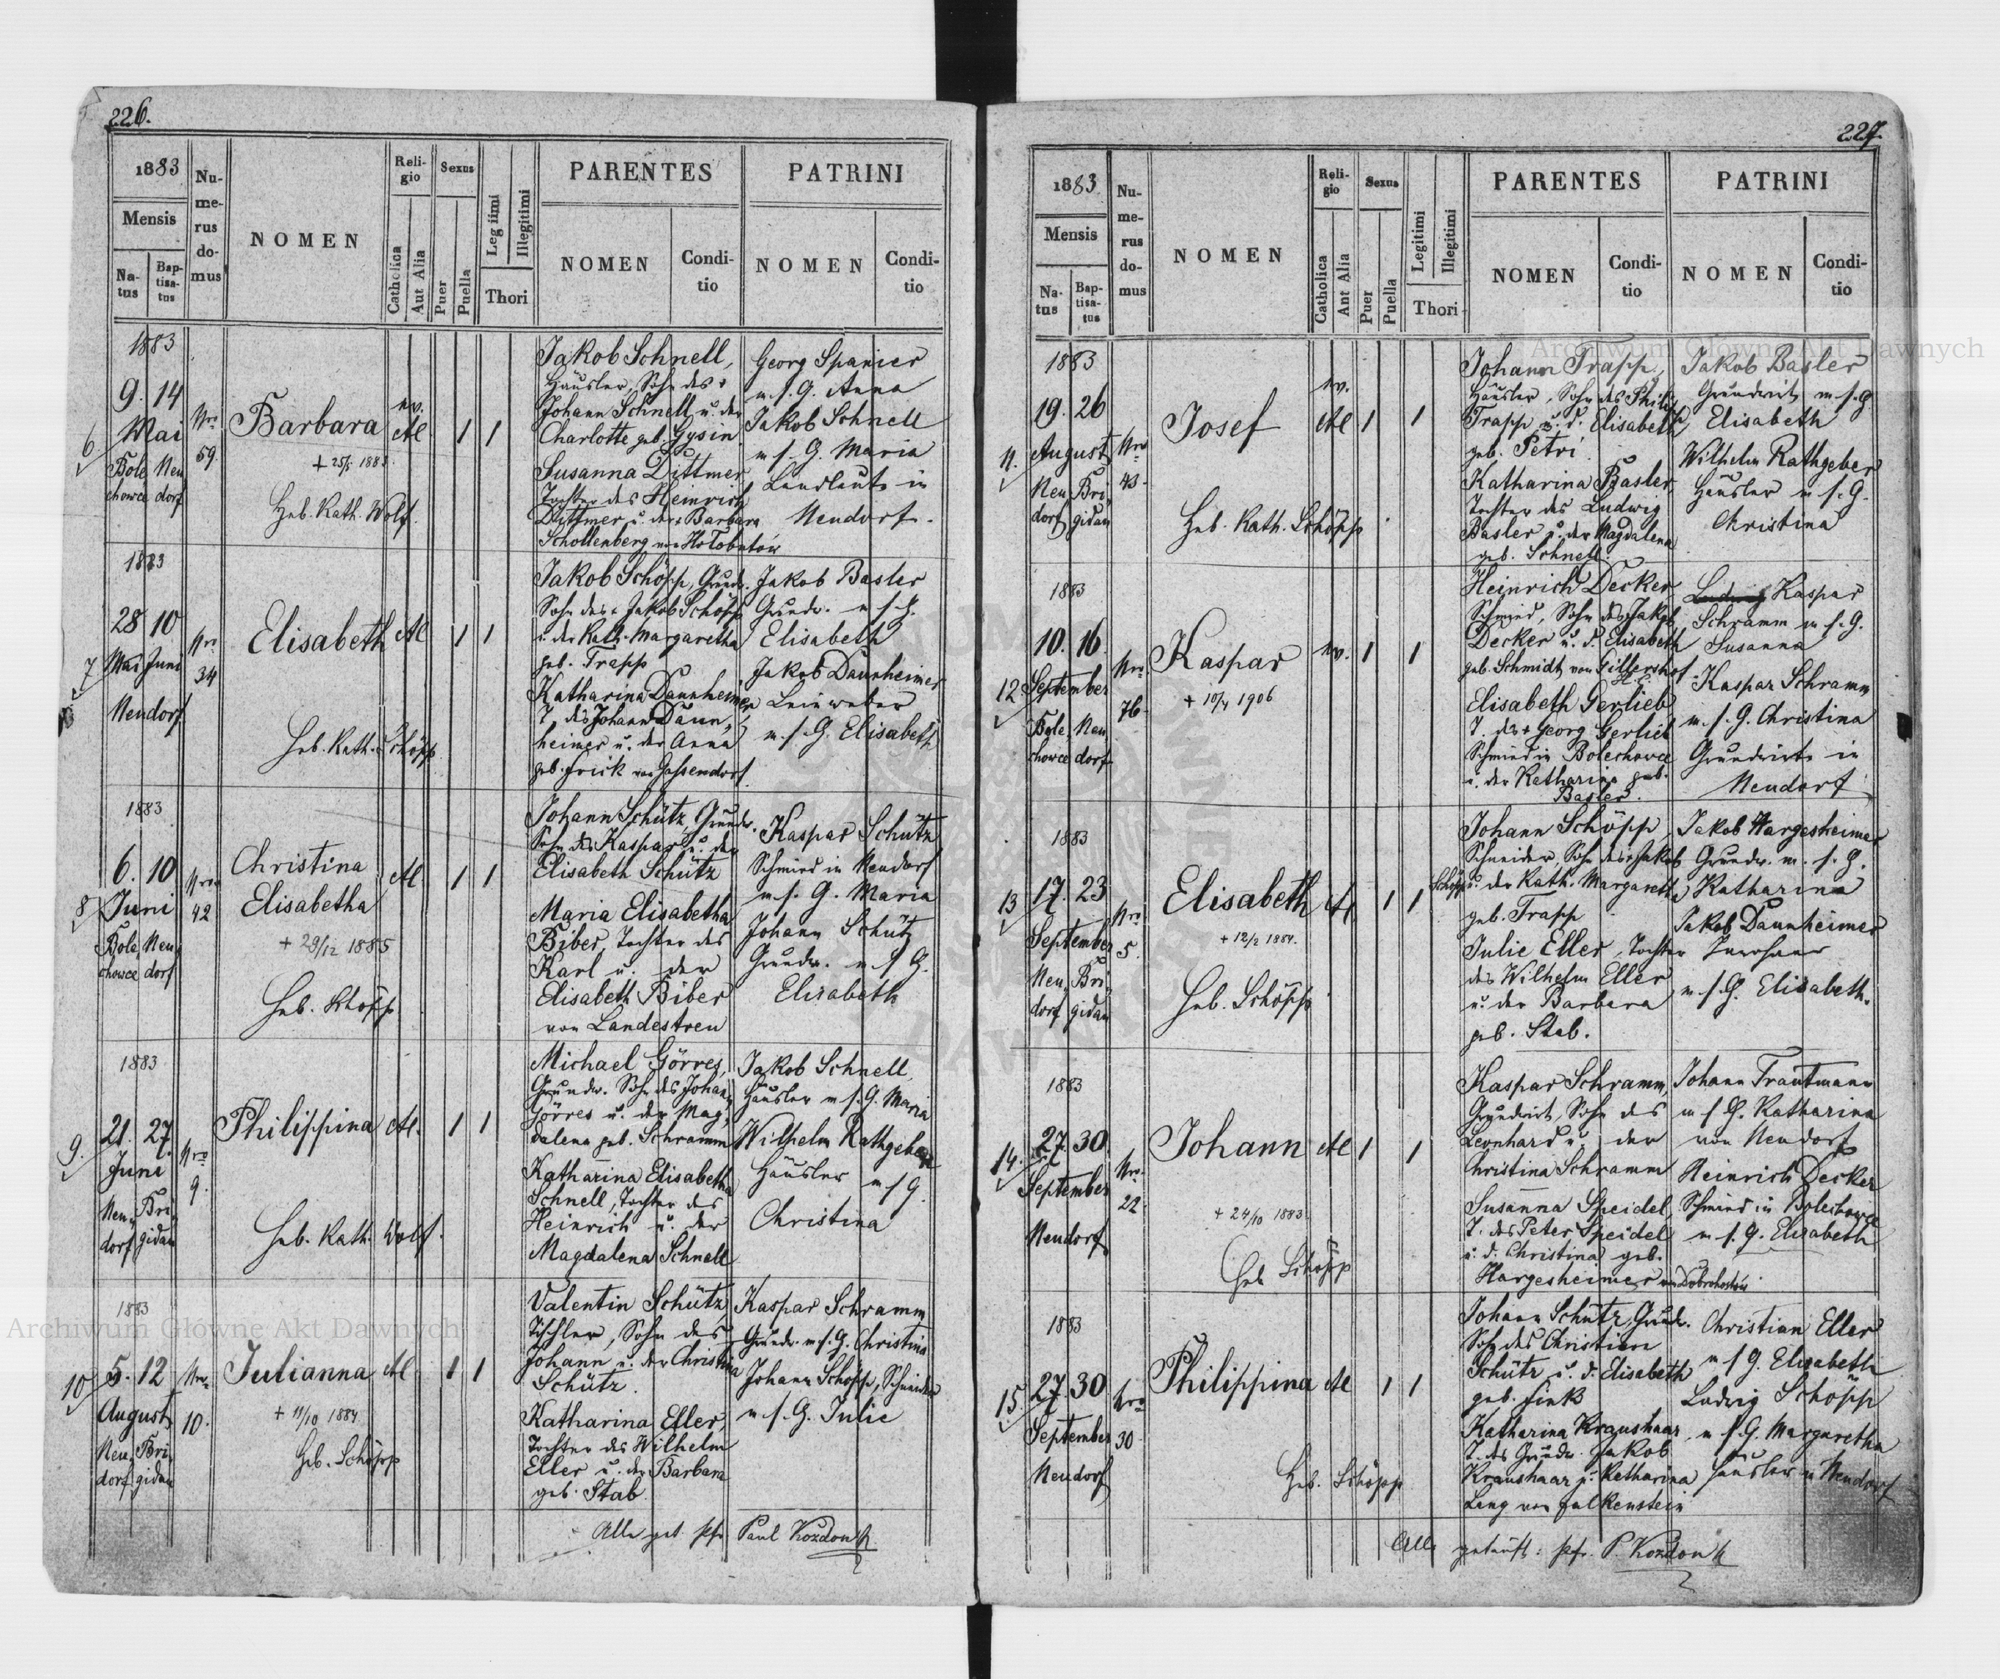 226.
1883
Mensis
Na-
tus
Bap-
tisa-
tus
Nu-
me-
rus
do-
mus
NOMEN
Reli-
gio
Catholica
Aut Alia
Sexus
Puer
Puella
Legitimi
Illegitimi
Thori
PARENTES
NOMEN
Condi-
tio
PATRINI
NOMEN
Condi-
tio
1883
6
9. 14
Mai
Bole Neu
chowce dorf
Nro
59.
Barbara
+ 25/5 1883.
Heb. Kath. Wolf.
ev.
Al
1 1
Jakob Schnell,
Häusler, Sohn des +
Johann Schnell u. der
Charlotte geb. Gysin
Susanna Dittmer
Tochter des Heinrich
Dittmer u. der + Barbara
Schollenberg
Georg Spanier
m. s. G. Anna
Jakob Schnell
m. s. G. Maria
Landleute in
Neudorf.
1883
7
28 10
Mai Juni
Neudorf
Nro
34
Elisabeth
Heb. Kath. Schöpp
Al
1 1
Jakob Schöpp, Grundw.
Sohn des + Jakob Schöpp
u. der Kath. Margaretha
geb. Trapp
Katharina Daunheimer
T. des Johann Daun-
heimer u. der Anna
geb. Frick von Gassendorf
Jakob Basler
Grundw. m. s. G.
Elisabeth
Jakob Daunheimer
Leinweber
m. s. G. Elisabeth
1883
8
6. 10
Juni
Bole Neu
chowce dorf
Nro
42
Christina
Elisabetha
+ 29/12 1885
Heb. Schöpp
Al
1 1
Johann Schütz, Grundw.
Sohn des Kaspar u. der
Elisabeth Schütz
Maria Elisabetha
Biber, Tochter des
Karl u. der
Elisabeth Biber
von Landestreu
Kaspar Schütz
Schmied in Neudorf
m. s. G. Maria
Johann Schütz
Grundw. m. s. G.
Elisabeth
1883
9.
21. 27.
Juni
Neu Bri
dorf gidau
Nro
9.
Philippina
Heb. Kath. Wolf.
Al.
1 1
Michael Görres,
Grundw. Sohn des Johann
Görres u. der Mag-
dalena geb. Schramm
Katharina Elisabetha
Schnell, Tochter des
Heinrich u. der
Magdalena Schnell
Jakob Schnell,
Häusler m. s. G. Maria
Wilhelm Rathgeber
Häusler m. s. G.
Christina
1883
10
5. 12
August
Neu Bri
dorf gidau
Nro
10.
Julianna
+ 11/10 1884
Heb. Schöpp
Al
1 1
Valentin Schütz
Tischler, Sohn des
Johann u. der Christina
Schütz.
Katharina Eller,
Tochter des Wilhelm
Eller u. der Barbara
geb. Stab
Kaspar Schramm
Grundw. m. s. G. Christina
Johann Schöpp, Schneider
m. s. G. Julie
Alle get. Pfr. Paul Kozdon
227.
1883
Mensis
Na-
tus
Bap-
tisa-
tus
Nu-
me-
rus
do-
mus
NOMEN
Reli-
gio
Catholica
Aut Alia
Sexus
Puer
Puella
Legitimi
Illegitimi
Thori
PARENTES
NOMEN
Condi-
tio
PATRINI
NOMEN
Condi-
tio
1883
11.
19. 26
August
Neu Bri
dorf gidau
Nro
43.
Josef
Heb. Kath. Schöpp
ev.
Al
1 1
Johann Trapp,
Häusler, Sohn des Philip
Trapp u. d. Elisabeth
geb. Petri
Katharina Basler,
Tochter des Ludwig
Basler u. der Magdalena
geb. Schnell.
Jakob Basler
Grundwirt m. s. G
Elisabeth
Wilhelm Rathgeber
Häusler m. s. G.
Christina
1883
12
10. 16.
September
Bole Neu
chowce dorf
Nro
76.
Kaspar
+ 10/4 1906
ev.
1 1
Heinrich Decker,
Schmied, Sohn des Jakob
Decker u. d. Elisabeth
geb. Schmidt von Gillershof
Elisabeth Gerlieb
T. des + Georg Gerlieb
Schmied in Bolechowce
u. der Katharina geb.
Basler.
Ludwig Kaspar
Schramm m. s. G.
Susanna
Kaspar Schramm
m. s. G. Christina
Grundwirte in
Neudorf
1883
13
17. 23
September
Neu Bri
dorf gidau
Nro
5.
Elisabeth
+ 12/2 1884.
Heb. Schöpp
Al
1 1
Johann Schöpp
Schneider, Sohn des + Jakob
Schöpp u. der Kath. Margaretha
geb. Trapp
Julie Eller, Tochter
des Wilhelm Eller
u. der Barbara
geb. Stab.
Jakob Hargesheimer
Grundw. m. s. G.
Katharina
Jakob Daunheimer
m. s. G. Elisabeth.
1883
14.
27. 30.
September
Neudorf
Nro
22.
Johann
+ 24/10 1883.
Heb Schöpp
Al
1 1
Kaspar Schramm,
Grundwirt, Sohn des
Leonhard u. der
Christina Schramm
Susanna Speidel,
T. des Peter Speidel
u. d. Christina geb.
Hargesheimer von Dobrohostów
Johann Trautmann
m. s. G. Katharina
von Neudorf
Heinrich Decker
Schmied in Bolechowce
m. s. G. Elisabeth
1883
15.
27. 30
September
Neudorf
Nro
30.
Philippina
Heb. Schöpp
Al
1 1
Johann Schütz, Grundw.
Sohn des Christian
Schütz u. d. Elisabeth
geb. Fink
Katharina Kraushaar
T. des Grundw. Jakob
Kraushaar u. Katharina
Lang von Falkenstein
Christian Eller
m. s. G. Elisabeth
Ludwig Schöpp
m. s. G. Margaretha
Häusler in Neudorf
Alle getauft: Pfr. P. Kozdon
Archiwum Główne Akt Dawnych
Archiwum Główne Akt Dawnych